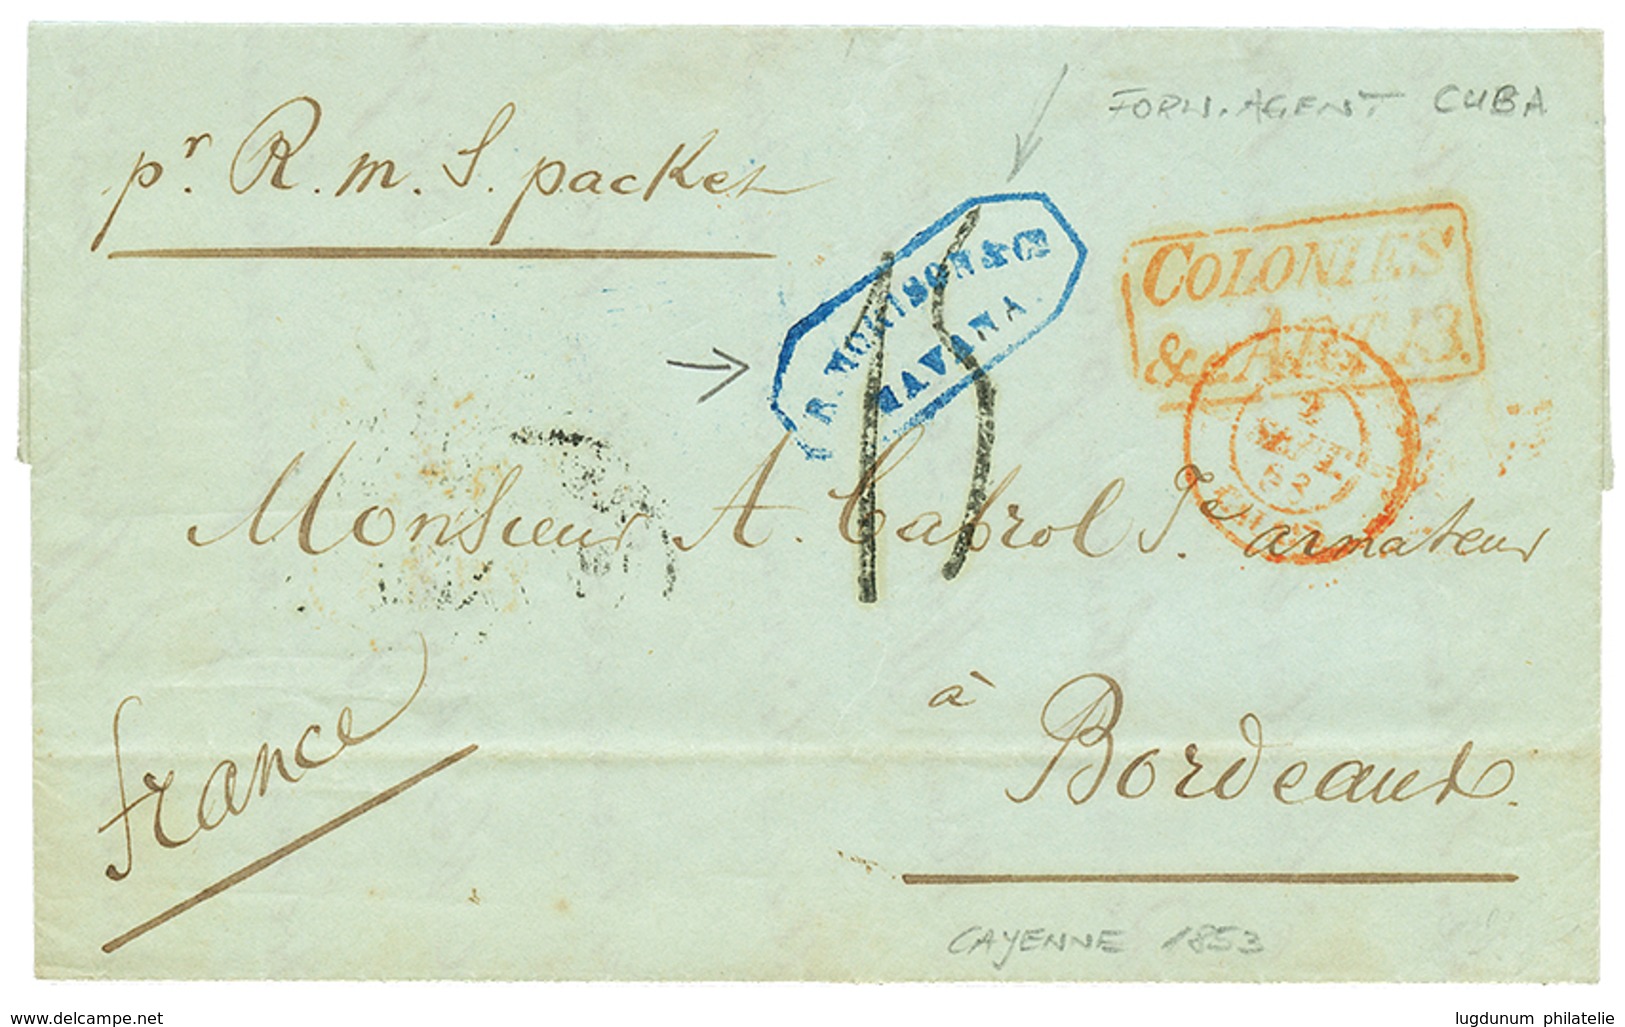 FORW. AGENT CUBA
pr. R. m. S. packet
R. MORISON & Co
HAVANA
COLONIES
&c. ART. 13.
15
2
SEPT.
53
Monsieur A. Cabrol Je armateur
à
Bordeaux.
france
CAYENNE 1853
www.delcampe.net
lugdunum philatelie